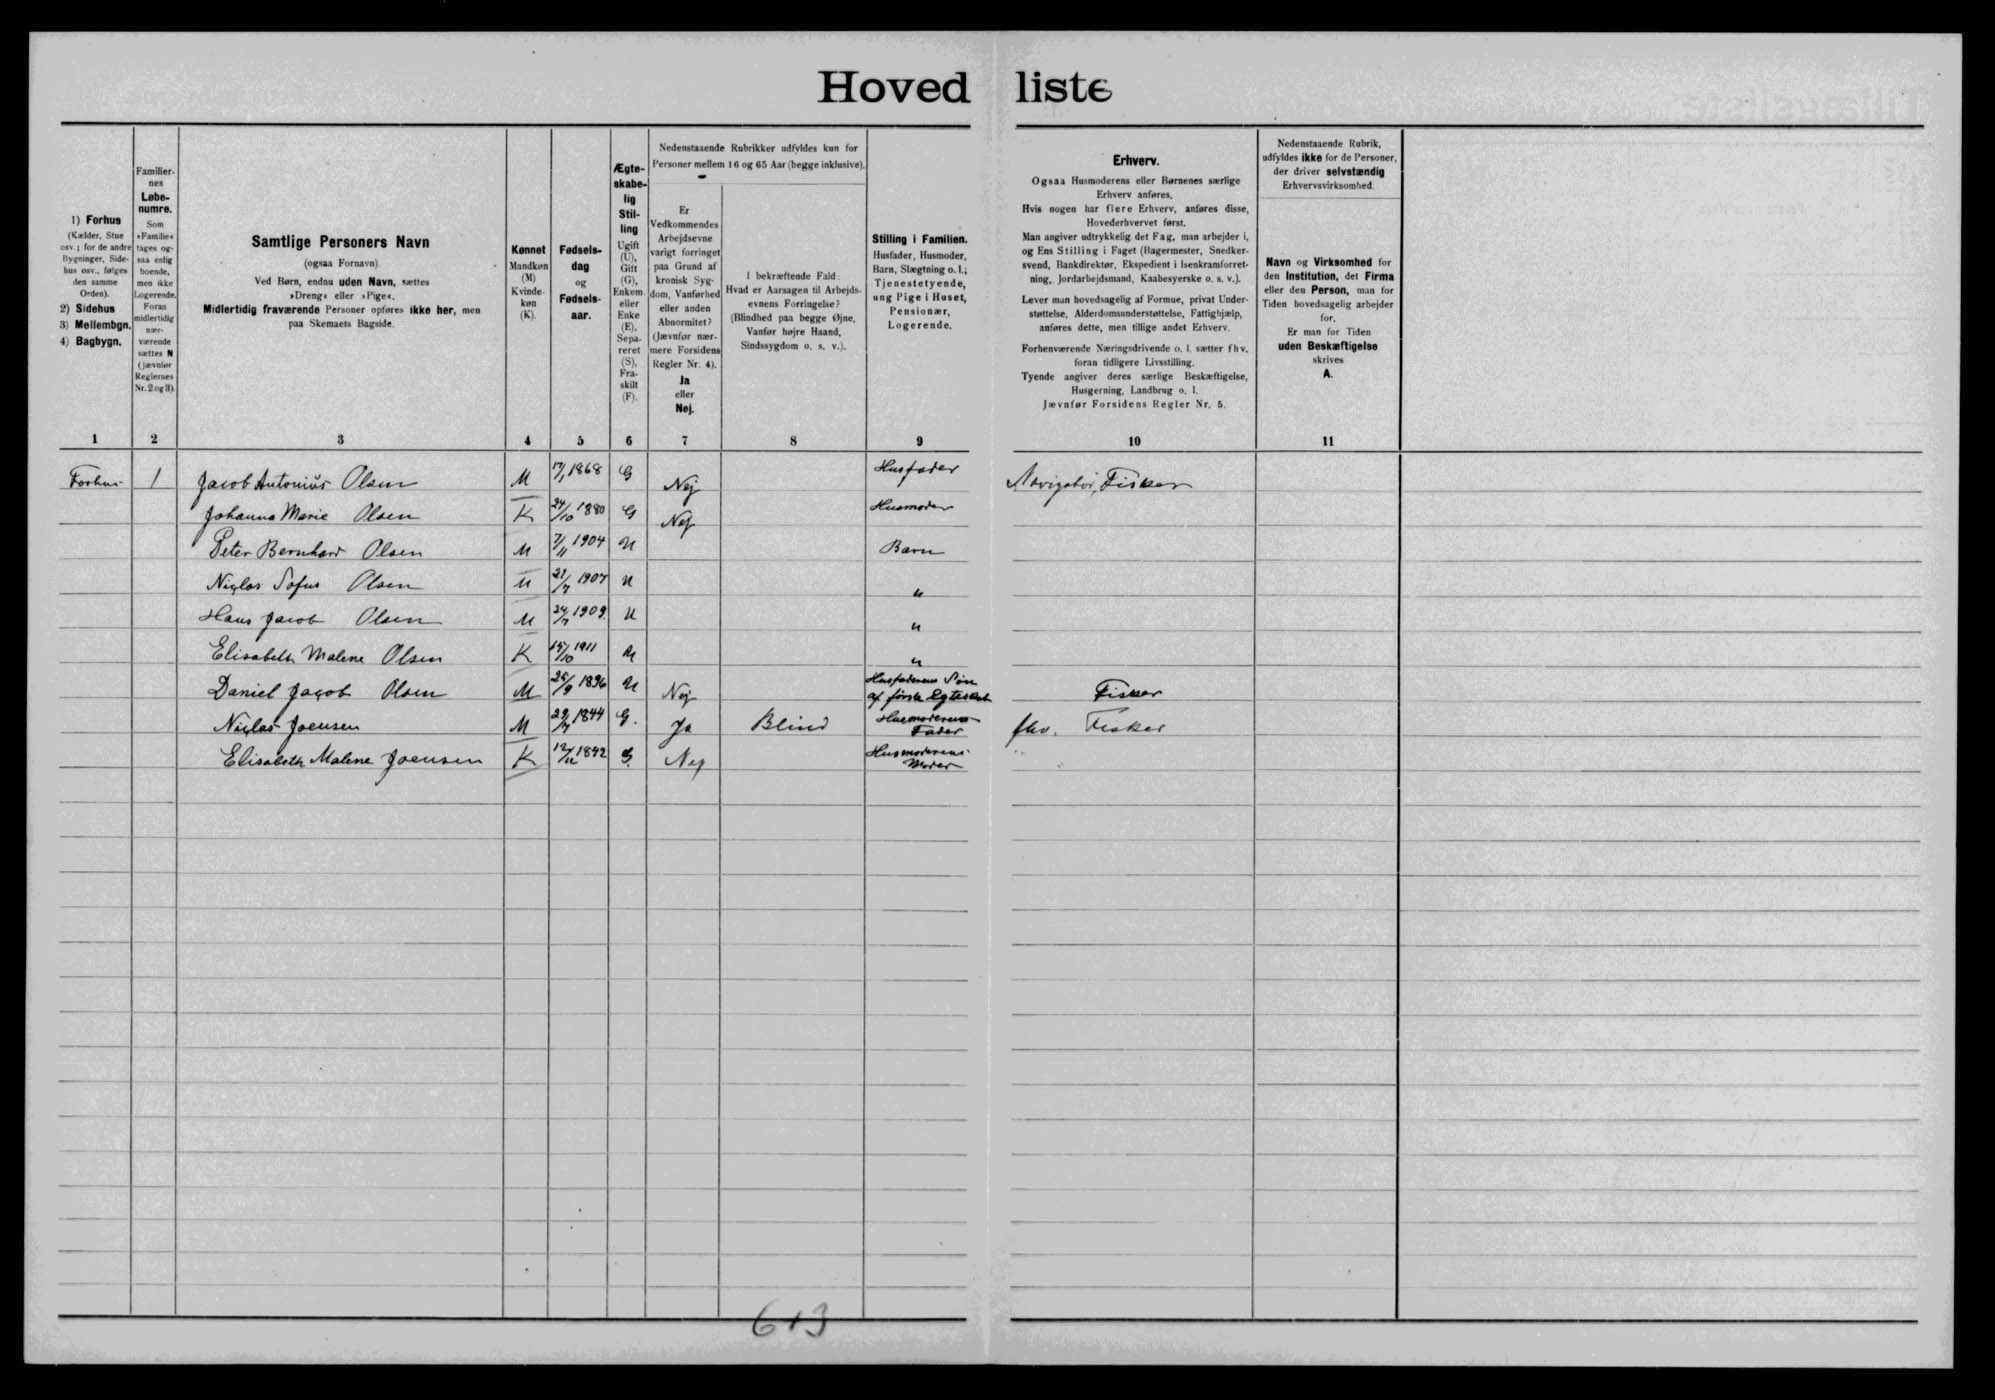 Hovedliste
1) Forhus
(Kælder, Stue
osv.; for de andre
Bygninger, Side-
hus osv., følges
den samme
Orden).
2) Sidehus
3) Mellembgn.
4) Bagbygn.
Familier-
nes
Løbe-
numre.
Som
»Familie«
tages og-
saa enlig
boende,
men ikke
Logerende.
Foran
midlertidig
nær-
værende
sættes N
(jævnfør
Reglernes
Nr. 2 og 3)
Samtlige Personers Navn
(ogsaa Fornavn).
Ved Børn, endnu uden Navn, sættes
»Dreng« eller »Pige«.
Midlertidig fraværende Personer opføres ikke her, men
paa Skemaets Bagside.
Kønnet
Mandkøn
(M)
Kvinde-
køn
(K).
Fødsels-
dag
og
Fødsels-
aar.
Ægte-
skabe-
lig
Stil-
ling
Ugift
(U),
Gift
(G),
Enkem.
eller
Enke
(E),
Sepa-
reret
(S),
Fra-
skilt
(F).
Nedenstaaende Rubrikker udfyldes kun for
Personer mellem 16 og 65 Aar (begge inklusive).
Er
Vedkommendes
Arbejdsevne
varigt forringet
paa Grund af
kronisk Syg-
dom, Vanførhed
eller anden
Abnormitet?
(Jævnfør nær-
mere Forsidens
Regler Nr. 4).
Ja
eller
Nej.
I bekræftende Fald:
Hvad er Aarsagen til Arbejds-
evnens Forringelse?
(Blindhed paa begge Øjne,
Vanfør højre Haand,
Sindssygdom o. s. v.).
Stilling i Familien.
Husfader, Husmoder,
Barn, Slægtning o. l.;
Tjenestetyende,
ung Pige i Huset,
Pensionær,
Logerende.
Erhverv.
Ogsaa Husmoderens eller Børnenes særlige
Erhverv anføres.
Hvis nogen har flere Erhverv, anføres disse,
Hovederhvervet først.
Man angiver udtrykkelig det Fag, man arbejder i,
og Ens Stilling i Faget (Bagermester, Snedker-
svend, Bankdirektør, Ekspedient i Isenkramforret-
ning, Jordarbejdsmand, Kaabesyerske o. s. v.).
Lever man hovedsagelig af Formue, privat Under-
støttelse, Alderdomsunderstøttelse, Fattighjælp,
anføres dette, men tillige andet Erhverv.
Forhenværende Næringsdrivende o. l. sætter fhv.
foran tidligere Livsstilling.
Tyende angiver deres særlige Beskæftigelse,
Husgerning, Landbrug o. l.
Jævnfør Forsidens Regler Nr. 5.
Nedenstaaende Rubrik,
udfyldes ikke for de Personer,
der driver selvstændig
Erhvervsvirksomhed.
Navn og Virksomhed for
den Institution, det Firma
eller den Person, man for
Tiden hovedsagelig arbejder
for.
Er man for Tiden
uden Beskæftigelse
skrives
A.
1 2 3 4 5 6 7 8 9 10 11
Forhus 1 Jacob Antonius Olsen M 17/1 1868 G Nej Husfader Navigatør, Fisker
Johanna Marie Olsen K 24/10 1880 G Nej Husmoder
Peter Bernhard Olsen M 7/11 1904 U Barn
Niclas Sofus Olsen M 21/7 1907 U "
Hans Jacob Olsen M 24/7 1909 U "
Elisabeth Malene Olsen K 15/10 1911 U "
Daniel Jacob Olsen M 26/9 1896 U Nej Husfaderens Søn af første Egteskab Fisker
Niclas Joensen M 29/7 1844 G. Ja Blind Husmoderens Fader fhv. Fisker
Elisabeth Malene Joensen K 12/11 1842 G. Nej Husmoderens Moder
613